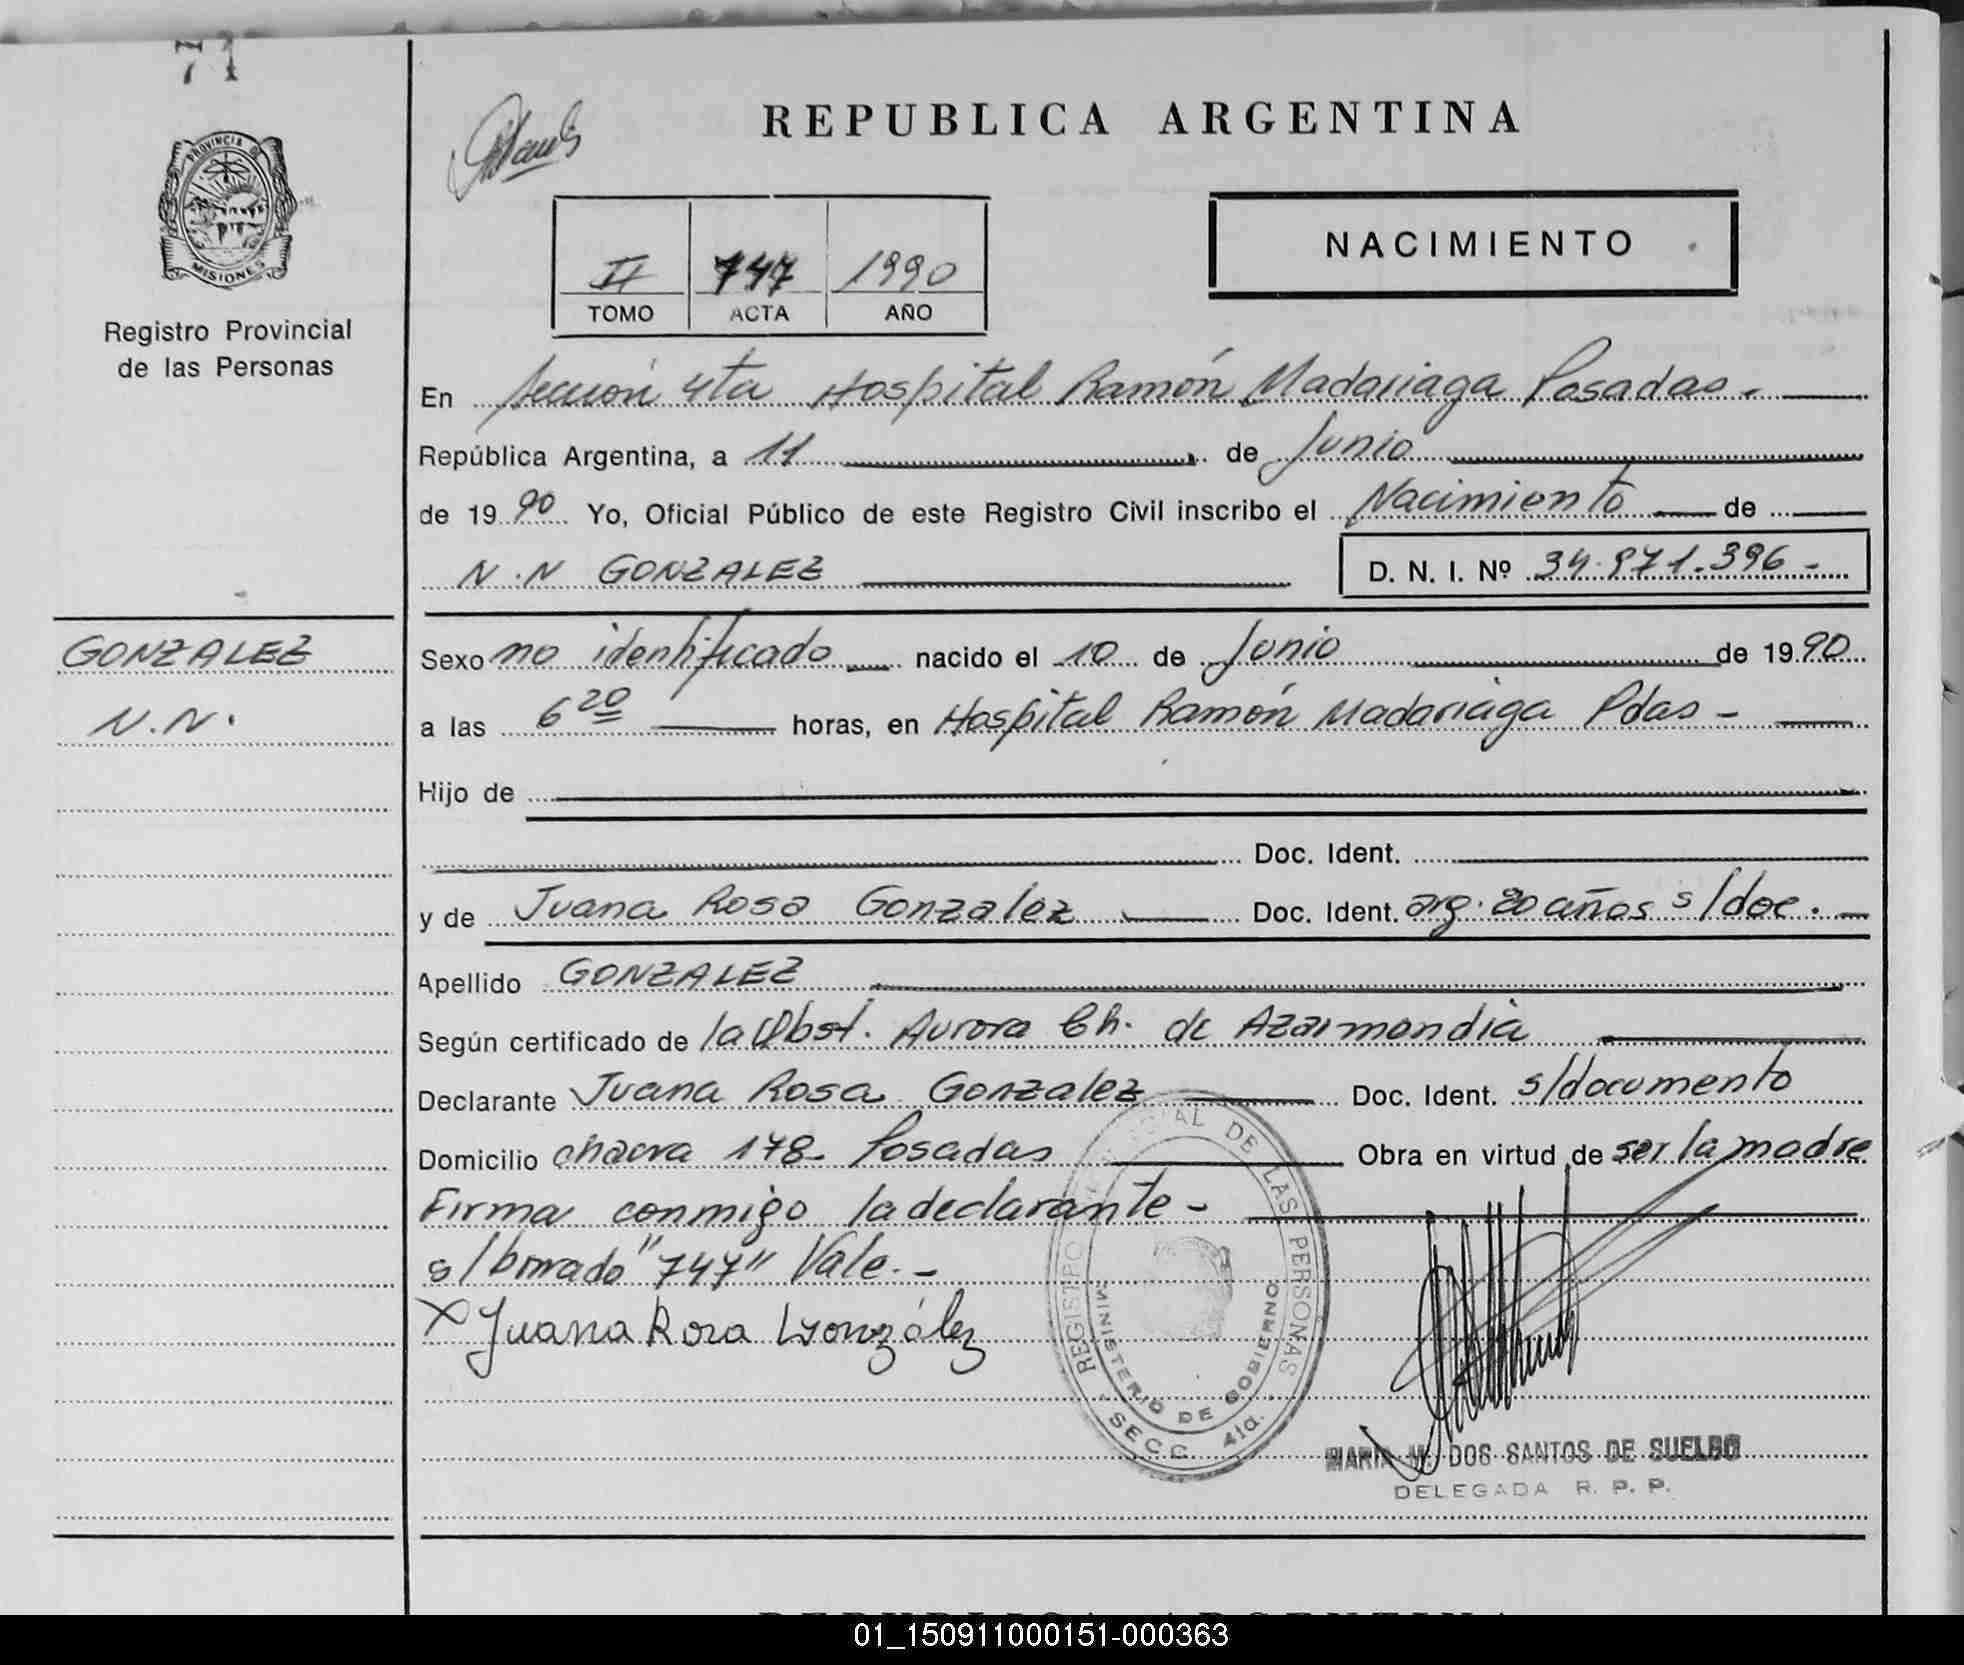 71
REPUBLICA ARGENTINA
PROVINCIA DE
MISIONES
Registro Provincial
de las Personas
II 747 1990
TOMO ACTA AÑO
NACIMIENTO
En Sección 4ta Hospital Ramón Madariaga Posadas.-
República Argentina, a 11 de Junio
de 1990 Yo, Oficial Público de este Registro Civil inscribo el Nacimiento de
N.N GONZALEZ D. N. I. Nº 34.971.396-
GONZALEZ
N.N.
Sexo no identificado nacido el 10 de Junio de 1990
a las 6 20 horas, en Hospital Ramón Madariaga Pdas-
Hijo de
Doc. Ident.
y de Juana Rosa Gonzalez Doc. Ident. arg. 20 años s/doc.
Apellido GONZALEZ
Según certificado de la Obst. Aurora Ch. de Azarmendia
Declarante Juana Rosa Gonzalez Doc. Ident. s/documento
Domicilio chacra 178- Posadas Obra en virtud de ser la madre
Firma conmigo la declarante-
s/borrado "747" Vale.-
X Juana Rosa González
REGISTRO PROVINCIAL DE LAS PERSONAS
MINISTERIO DE GOBIERNO
SECC. 4ta.
MARIA M. DOS SANTOS DE SUELDO
DELEGADA R. P. P.
REPUBLICA ARGENTINA
01_150911000151-000363